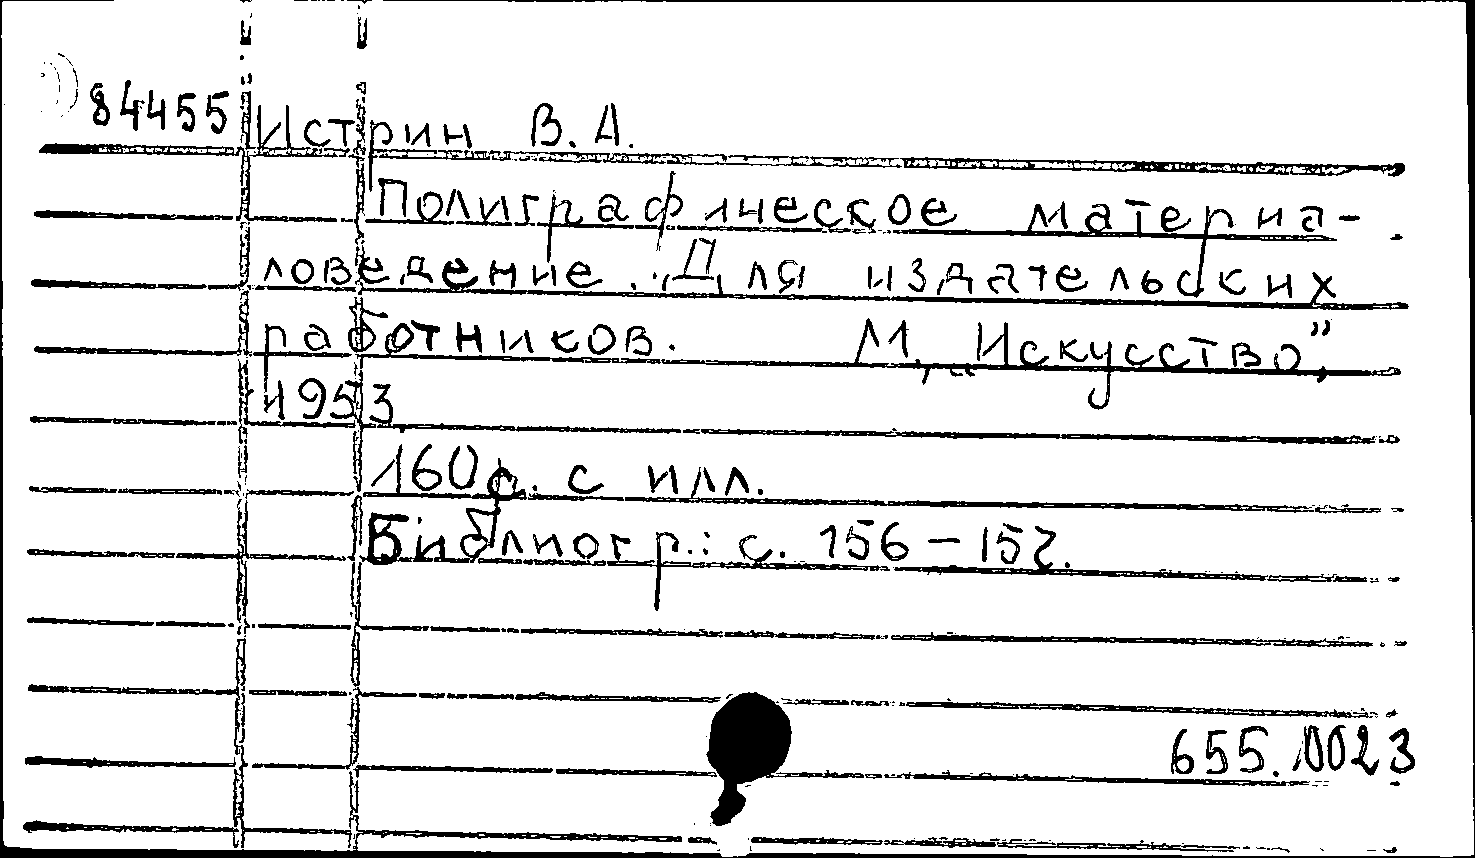 84455 Истрин В. А.
Полиграфическое материа-
ловедение. Для издательских
работников. М., „Искусство”,
1953
160 с. с илл.
Библиогр.: с. 156-157.
655.0023